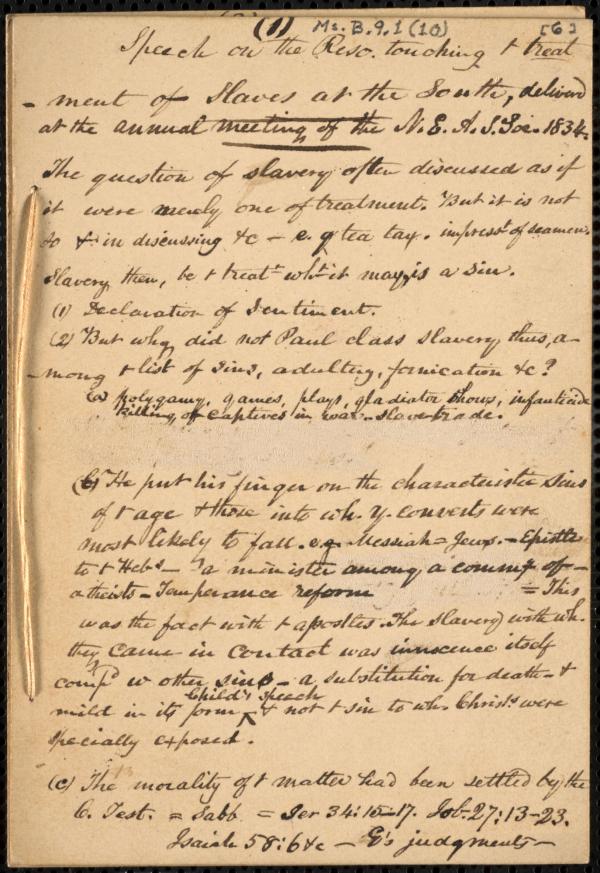 (1) Ms. B.9.1 (10) [6]
Speech on the Reso. touching t treat
- ment of Slaves at the South, delivered
at the annual meeting of the N. E. A. S. Soc. 1834.
The question of slavery often discussed as if
it were merely one of treatment. But it is not
so & in discussing &c - e. g tea tax. impresst of seamen.
Slavery then, be t treatt wht it may, is a sin.
(1) Declaration of Sentiment.
(2) But why did not Paul class slavery thus, a-
- mong t list of sins, adultery, fornication &c?
(a) polygamy, games, plays, gladiator shows, infanticide
killing of captives in war - slave trade.
(b) He put his finger on the characteristic sins
of t age & those into wh. y. converts were
most likely to fall. e.g. Messiah = Jews. - Epistle
to t Hebs - a minister among a commy of -
atheists - Temperance reform = This
was the fact with t apostles. The slavery with wh.
they came in contact was innocence itself
compd w other sins - a substitution for death - &
Child's Speech
mild in its form - & not t sin to wh. Christs were
specially exposed.
(c) The morality of t matter had been settled by the
O. Test. = Sabb = Jer 34:15-17. Job-27:13-23.
Isaiah 58:6 &c - G's judgments -